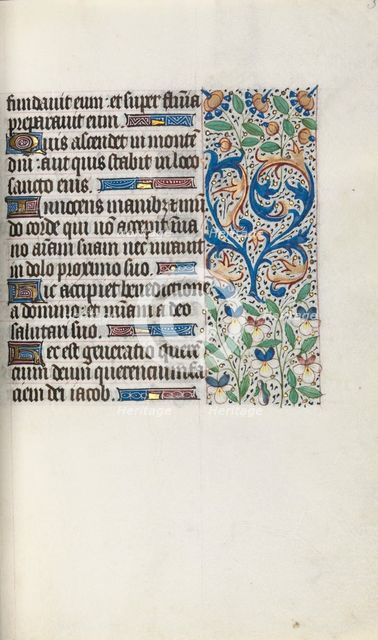 fundavit eum: et super flumīa
preparavit eum.
Quis ascendet in monte
dn̄i: aut quis stabit in loco
sancto eius.
Innocens manib⁊ ⁊ mū
do corde qui nō accepit ī va
no aīam suam nec iuravit
in dolo proximo suo.
Hic accipiet benedictionē
a domino: et mīam a deo
salutari suo.
Hec est generatio quere
cium deum querencium fa
ciem dei iacob.
Heritage
Heritage
Heritage